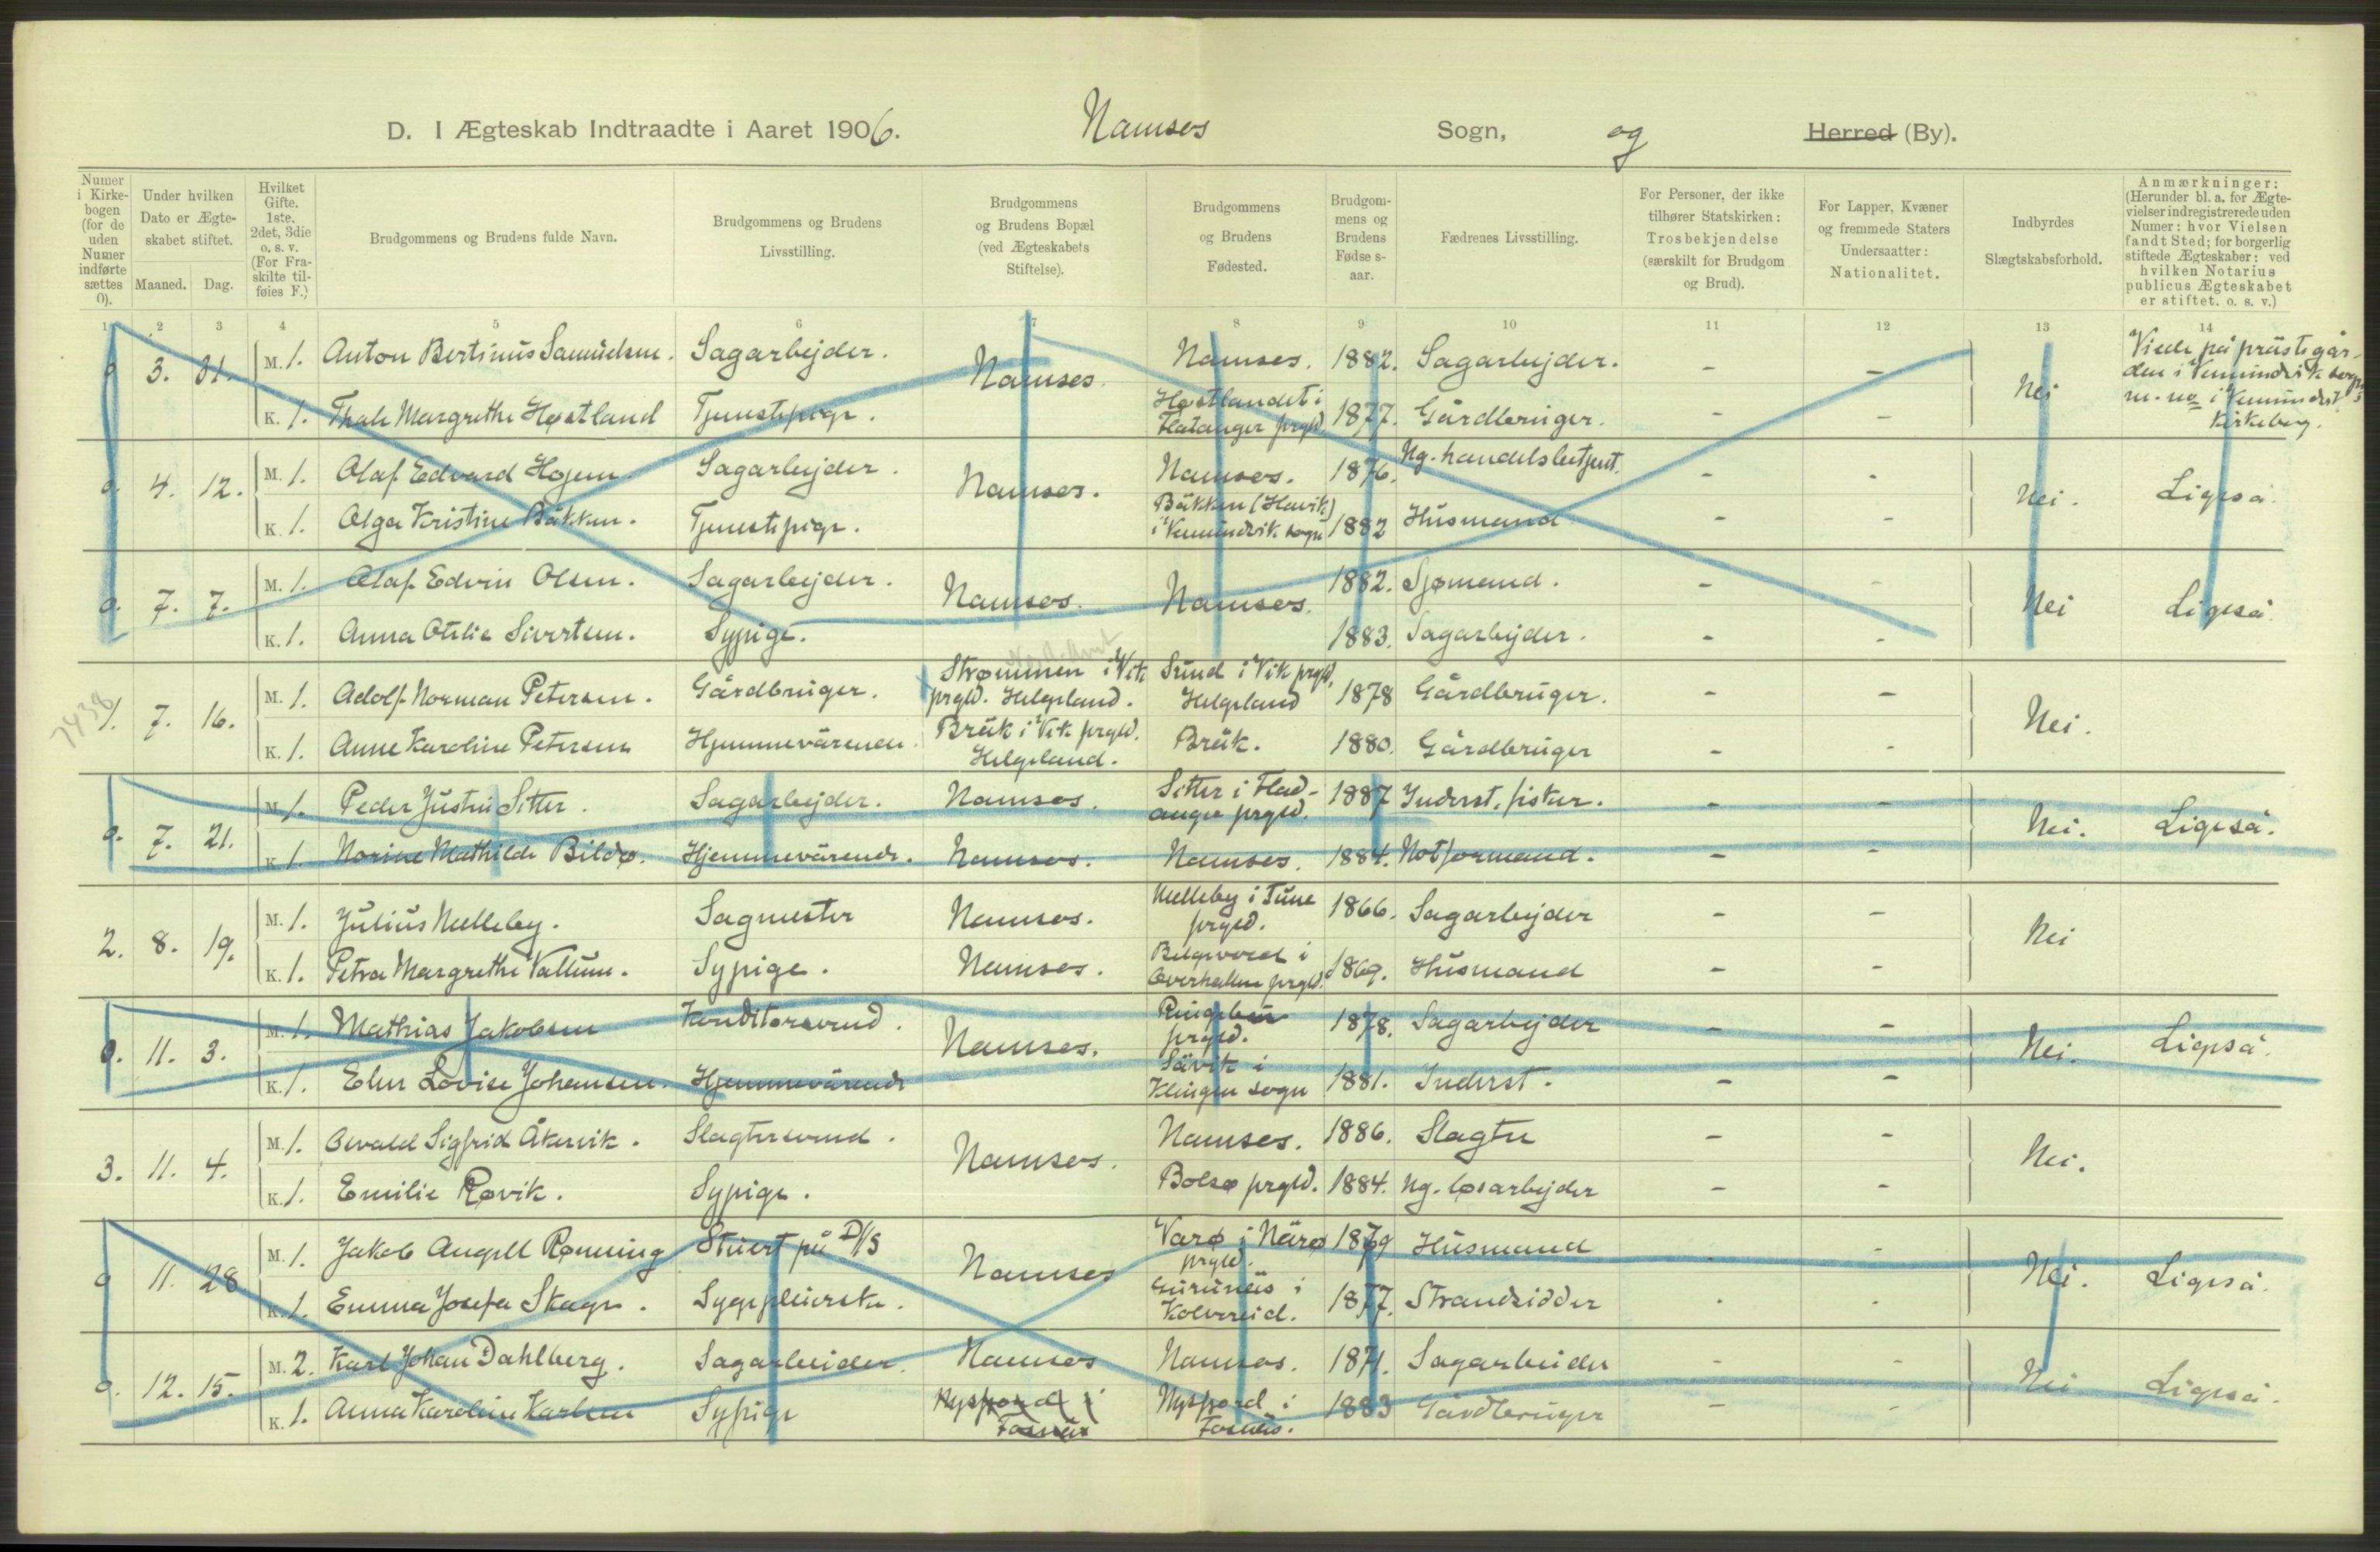 D. I Ægteskab Indtraadte i Aaret 1906. Namsos Sogn, og Herred (By).
Numer i Kirke-bogen (for de uden Numer indførte sættes 0).
Under hvilken Dato er Ægte-skabet stiftet.
Maaned. Dag.
Hvilket Gifte. 1ste, 2det, 3die o. s. v. (For Fra-skilte til-føies F.)
Brudgommens og Brudens fulde Navn.
Brudgommens og Brudens Livsstilling.
Brudgommens og Brudens Bopæl (ved Ægteskabets Stiftelse).
Brudgommens og Brudens Fødested.
Brudgom-mens og Brudens Fødse s-aar.
Fædrenes Livsstilling.
For Personer, der ikke tilhører Statskirken: Trosbekjendelse (særskilt for Brudgom og Brud).
For Lapper, Kvæner og fremmede Staters Undersaatter: Nationalitet.
Indbyrdes Slægtskabsforhold.
Anmærkninger: (Herunder bl. a. for Ægte-vielser indregistrerede uden Numer: hvor Vielsen fandt Sted; for borgerlig stiftede Ægteskaber: ved hvilken Notarius publicus Ægteskabet er stiftet. o. s. v.)
1 2 3 4 5 6 7 8 9 10 11 12 13 14
0 3. 31. M. 1. Anton Bertinus Samuelsen. Sagarbejder. Namsos. Namsos. 1882. Sagarbejder. - - Nei Viede på prästegår-den i Vemundvik sogn
K. 1. Thale Margrethe Høstland Tjenestepige. Høstlandet i Flatanger prgld. 1877. Gårdbruger. - - i Vemundvik Kirkebog.
0. 4. 12. M. 1. Olaf Edvard Hojem. Sagarbejder. Namsos. Namsos. 1876. Ng. handelsbetjent. - - Nei. Ligeså.
K. 1. Olga Kristine Bäkken. Tjenestepige. Bäkken (Havik) i Vemundvik sogn 1882 Husmand - -
0. 7. 7. M. 1. Olaf Edvin Olsen. Sagarbejder. Namsos. Namsos. 1882. Sjømand. - - Nei Ligeså.
K. 1. Anna Otilie Sivertsen. Sypige. 1883. Sagarbejder. - -
7438
1. 7. 16. M. 1. Adolf Norman Petersen. Gårdbruger. Strømmen i Vik prgld. Helgeland. Sund i Vik prgld. Helgeland 1878 Gårdbruger. - - Nei.
K. 1. Anne Karoline Petersen Hjemmevärende. Bruk i Vik prgld. Helgeland. Bruk. 1880. Gårdbruger - -
0. 7. 21. M. 1. Peder Justin Sitter. Sagarbejder. Namsos. Sitter i Flad-anger prgld. 1887 Inderst, fisker. - - Nei. Ligeså.
K. 1. Norine Mathilde Bildø. Hjemmevärende. Namsos. Namsos. 1884. Notformand. - -
2. 8. 19. M. 1. Julius Melleby. Sagmester Namsos. Melleby i Tune prgld. 1866. Sagarbejder - - Nei
K. 1. Petra Margrethe Vallum. Sypige. Namsos. i Overhallen prgld. 1869. Husmand - -
0. 11. 3. M. 1. Mathias Jakobsen Konditorsvend. Namsos. Ringebu prgld. 1878. Sagarbejder - - Nei. Ligeså.
K. 1. Elen Lovise Johansen. Hjemmevärende Sävik i Klingen sogn 1881. Inderst. - -
3. 11. 4. M. 1. Osvald Sigfrid Åkervik. Slagtersvend. Namsos. Namsos. 1886. Slagter - - Nei.
K. 1. Emilie Røvik. Sypige. Bolsø prgld. 1884. Ng. løsarbejder - -
0 11. 28 M. 1. Jakob Angell Rønning Stuert på D/S Namsos Varø i Närø prgld. 1879 Husmand - - Nei. Ligeså.
K. 1. Emma Josefa Skage. Sygepleierske. i Kolvereid. 1877. Strandsidder - -
0. 12. 15. M. 2. Karl Johan Dahlberg. Sagarbeider. Namsos Namsos. 1871. Sagarbeider - - Nei Ligeså.
K. 1. Anna Karoline Karlsen Sypige Nysfjord i Fosnäs Nysfjord i Fosnäs. 1883 Gårdbruger - -